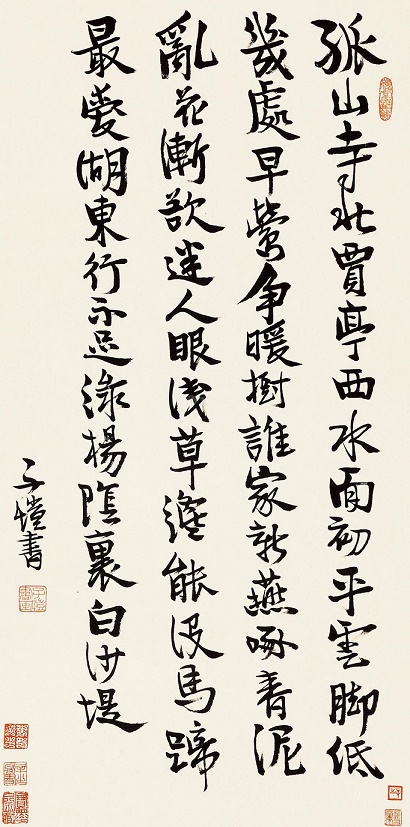 孤山寺北賈亭西水面初平雲脚低
幾處早鶯争暖樹誰家新燕啄春泥
亂花漸欲迷人眼淺草纔能没馬蹄
最愛湖東行不足綠楊陰裏白沙堤
子愷書